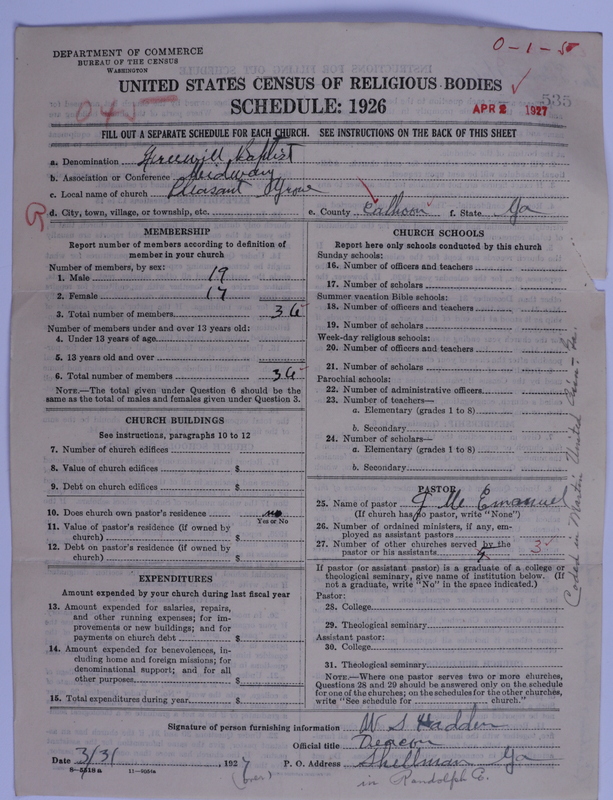 DEPARTMENT OF COMMERCE
BUREAU OF THE CENSUS
WASHINGTON
0-1-5
UNITED STATES CENSUS OF RELIGIOUS BODIES
SCHEDULE: 1926
045
APR 2 1927
535
FILL OUT A SEPARATE SCHEDULE FOR EACH CHURCH. SEE INSTRUCTIONS ON THE BACK OF THIS SHEET
a. Denomination Freewill Baptist
b. Association or Conference Midway
c. Local name of church Pleasant Grove
d. City, town, village, or township, etc.
e. County Calhoun f. State Ga
MEMBERSHIP
Report number of members according to definition of
member in your church
Number of members, by sex:
1. Male 19
2. Female 17
3. Total number of members 36
Number of members under and over 13 years old:
4. Under 13 years of age
5. 13 years old and over
6. Total number of members 36
NOTE.—The total given under Question 6 should be
same as the total of males and females given under Question 3.
CHURCH BUILDINGS
See instructions, paragraphs 10 to 12
7. Number of church edifices
8. Value of church edifices $
9. Debt on church edifices $
10. Does church own pastor's residence no
Yes or No
11. Value of pastor's residence (if owned by
church) $
12. Debt on pastor's residence (if owned by
church) $
EXPENDITURES
Amount expended by your church during last fiscal year
13. Amount expended for salaries, repairs,
and other running expenses; for im-
provements or new buildings; and for
payments on church debt $
14. Amount expended for benevolences, in-
cluding home and foreign missions; for
denominational support; and for all
other purposes $
15. Total expenditures during year $
CHURCH SCHOOLS
Report here only schools conducted by this church
Sunday schools:
16. Number of officers and teachers
17. Number of scholars
Summer vacation Bible schools:
18. Number of officers and teachers
19. Number of scholars
Week-day religious schools:
20. Number of officers and teachers
21. Number of scholars
Parochial schools:
22. Number of administrative officers
23. Number of teachers—
a. Elementary (grades 1 to 8)
b. Secondary
24. Number of scholars—
a. Elementary (grades 1 to 8)
b. Secondary
PASTOR
25. Name of pastor J M Emanuel
(If church has no pastor, write "None")
26. Number of ordained ministers, if any, em-
ployed as assistant pastors
27. Number of other churches served by the
pastor or his assistants 3
If pastor (or assistant pastor) is a graduate of a college or
theological seminary, give name of institution below. (If
not a graduate, write "No" in the space indicated.)
Pastor:
28. College
29. Theological seminary
Assistant pastor:
30. College
31. Theological seminary
NOTE.—Where one pastor serves two or more churches,
Questions 28 and 29 should be answered only on the schedule
for one of the churches; on the schedules for the other churches,
write "See schedule for church."
Coded in Martin United
Signature of person furnishing information W S Hadden
Official title Deacon
Date 3/31, 1927 P. O. Address Shellman Ga
(over)
in Randolph C.
8-5518a 11-9051a